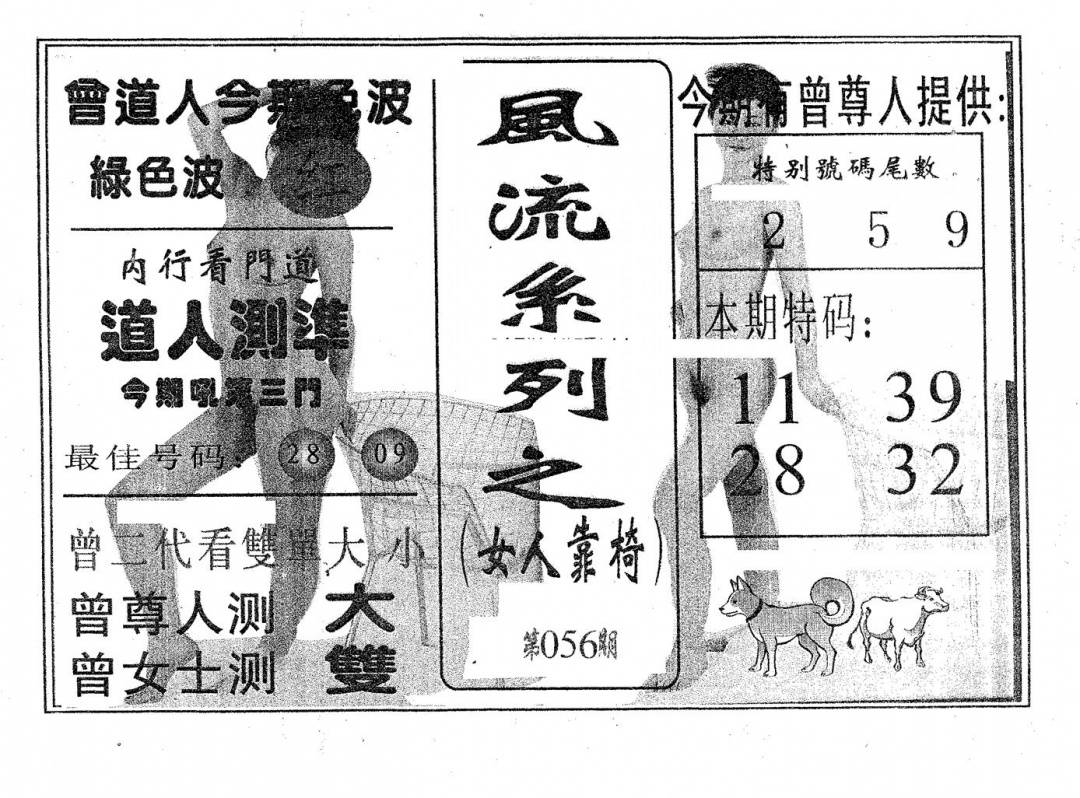 曾道人今期色波
綠色波
红
内行看門道
道人測準
今期吼準三門
最佳号码:
28 09
曾二代看雙單大小
曾尊人测 大
曾女士测 雙
風流系列之
(女人靠椅)
第056期
今期有曾尊人提供:
特别號碼尾數
2 5 9
本期特码:
11 39
28 32